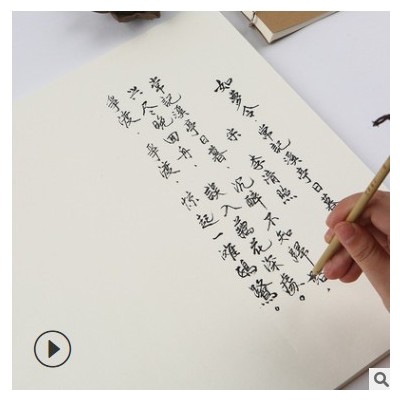 如夢令·常記溪亭日暮
宋·李清照
常記溪亭日暮，沉醉不知歸路，
兴尽晚回舟，誤入藕花深處。
爭渡，爭渡，惊起一灘鷗鷺。